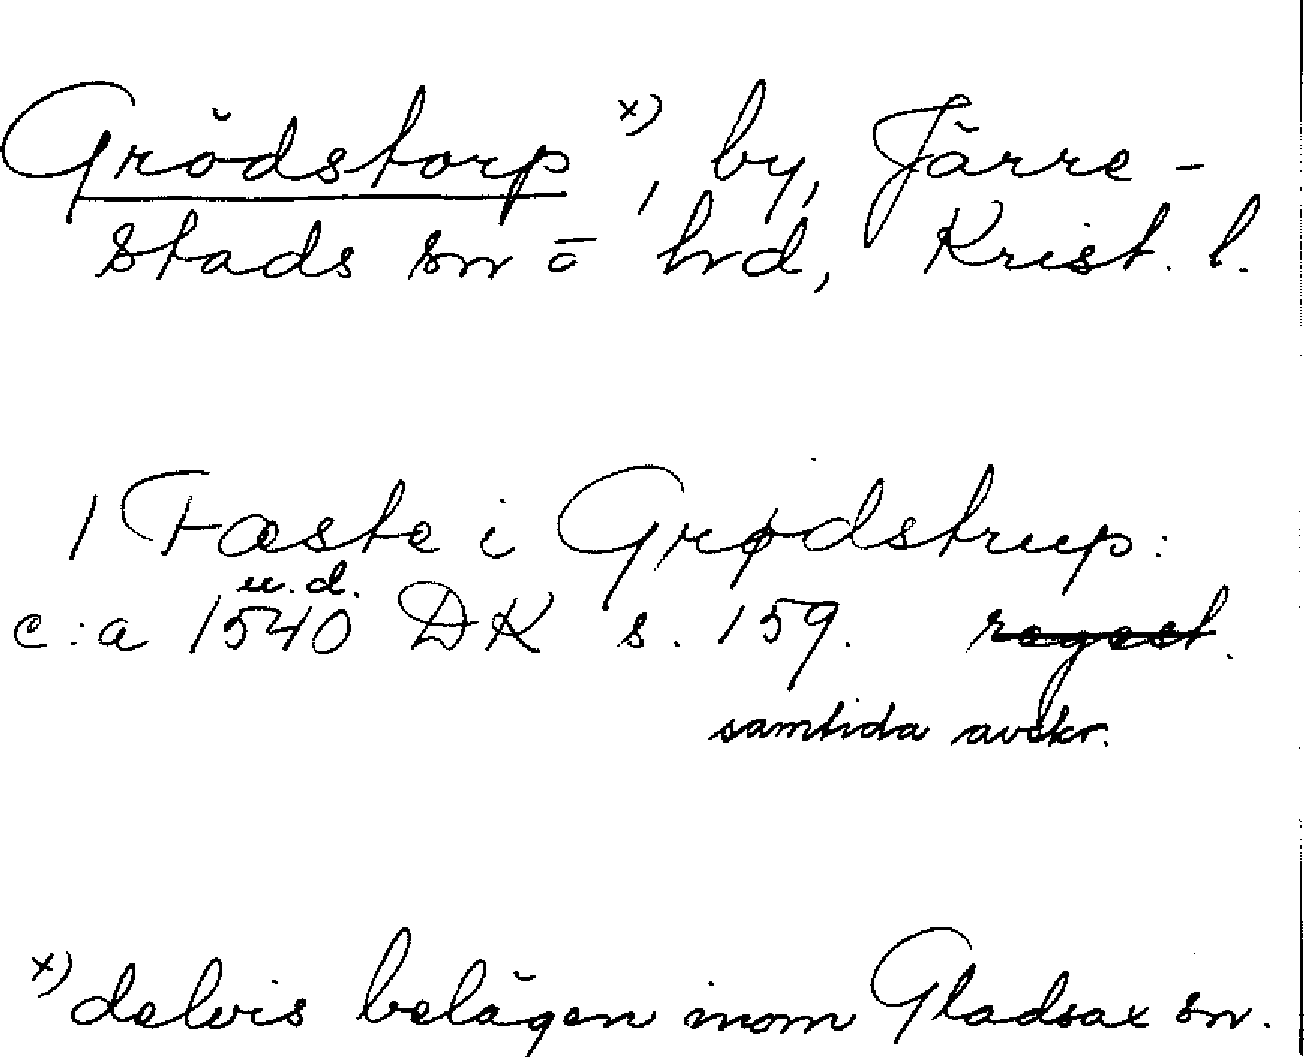 Grödstorp x), by, Järre-
stads sn o hrd, Krist. l.
1 Fæste i Grødstrup:
u.d.
c:a 1540 DK s. 159. regest.
samtida avskr.
x) delvis belägen inom Gladsax sn.